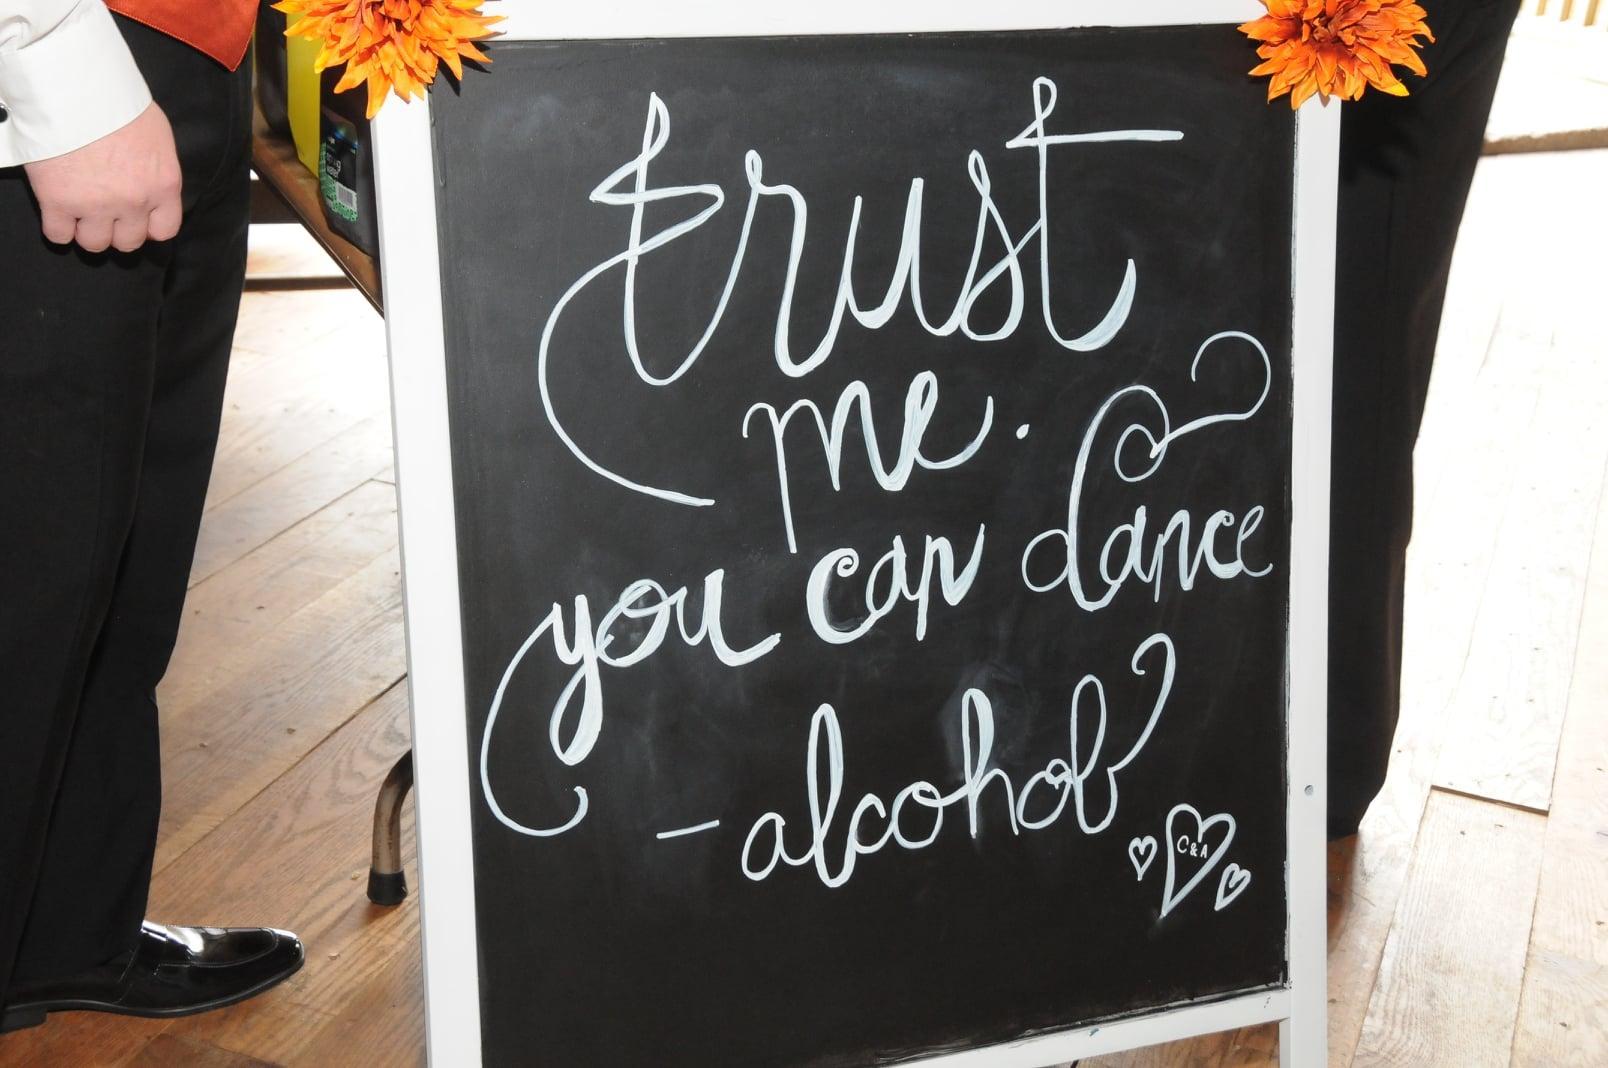 trust
me.
you can dance
- alcohol
C & A